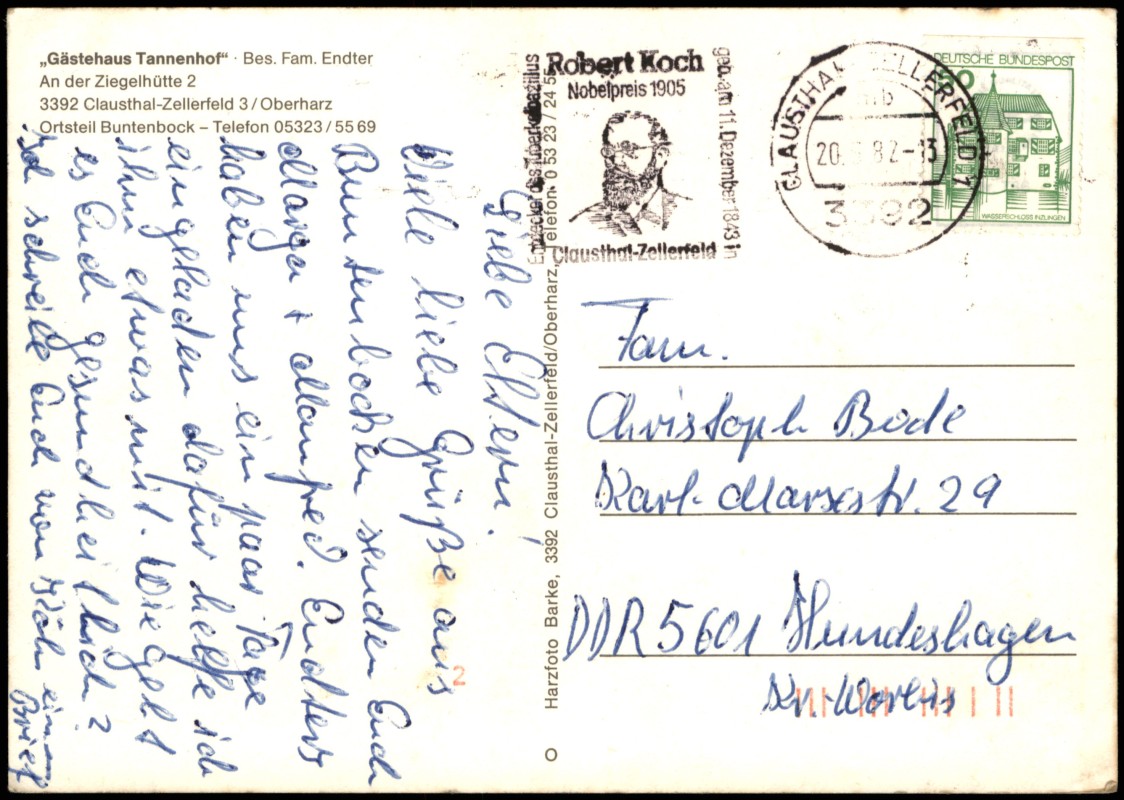 „Gästehaus Tannenhof“ · Bes. Fam. Endter
An der Ziegelhütte 2
3392 Clausthal-Zellerfeld 3 / Oberharz
Ortsteil Buntenbock – Telefon 05323 / 55 69
Liebe Eltern!
Viele liebe Grüße aus
Bunntenbocken senden Euch
Marga + Manfred. Endters
haben uns ein paar Tage
eingeladen dafür helfe ich
ihm etwas mit. Wie geht
es Euch gesundheitlich?
Ich schreibe Euch von Köln einen
Brief
Harzfoto Barke, 3392 Clausthal-Zellerfeld/Oberharz, Telefon 0 53 23 / 24 55
Entdecker des Tuberkelbazillus
Robert Koch
Nobelpreis 1905
geb. am 11. Dezember 1843 in
Clausthal-Zellerfeld
CLAUSTHAL-ZELLERFELD 1
20. 82-13
3392
DEUTSCHE BUNDESPOST
50
WASSERSCHLOSS INZLINGEN
Fam.
Christoph Bode
Karl-Marxstr. 29
DDR 5601 Hundeshagen
Kr. Worbis
2